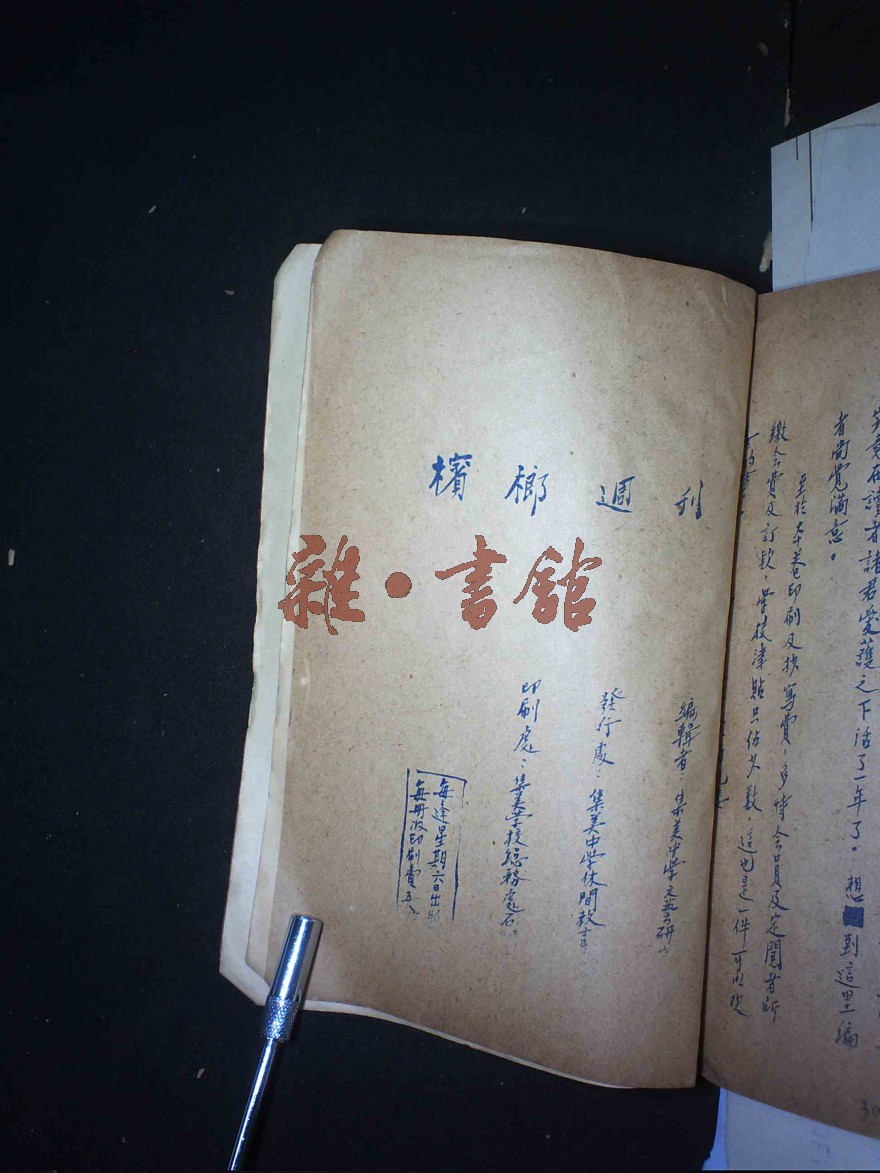 究竟在讀者諸君愛護之下活了一年了。想到這里編
者尚覺滿意。
至於本卷印刷及抄寫費，多恃會員及定閱者所
繳會費及訂款，學校津貼只佔少數，這也是一件可以
檳榔週刊
編輯者：集美中學文藝研
發行處：集美中學休閒教育
印刷處：集美學校總務處石
每逢星期六日出版
每冊收印刷費五
雜·書館